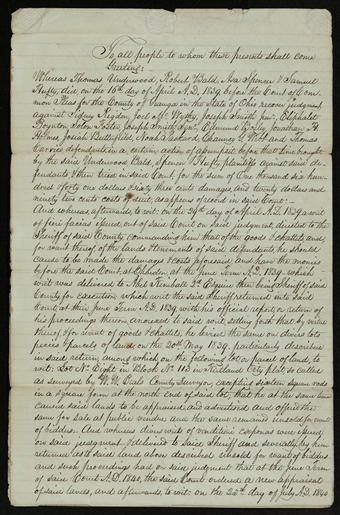 To all people to whom these presents shall come
Greeting:
Whereas Thomas Underwood, Robert Bald, Asa Spencer & Samuel
Hufty did, on the 16th day of April A.D. 1839 before the Court of Com
mon Pleas for the County of Geauga in the State of Ohio recover judgment
against Sidney Rigdon, Joel McWithy, Joseph Smith jun, Eliphalet
Boynton, Joseph Smith Sen, Edmund Jonathan H.
Holmes, Josiah Butterfield, Noah Packard, Chauncy G. Webb and Thomas
Carrico, defendants in a certain action of assumpsit before that time brought
by the said Underwood, Bald, Spencer & Hufty, plaintiffs against said de-
fendants & then tried in said Court for the sum of One thousand six hun-
dred & forty one dollars & sixty three cents damages, and twenty dollars and
ninety two cents costs of suit, as appears of record in said Court:—
And whereas, afterwards, to wit: on the 24th day of April A.D. 1839 a writ
of fieri facias issued out of said Court on said judgment, directed to the
Sheriff of said County, commanding him that of the goods & chattels, and
for want thereof of the lands & tenements of said defendants, he should
cause to be made the damages & costs aforesaid and have the monies
before the said Court, at Chardon, at the June Term A.D. 1839, which
writ was delivered to Abel Kimball 2d Esquire then being Sheriff of said
County for execution, which writ the said Sheriff returned into said
Court at their June Term A.D. 1839 with his official report or return of
his proceedings thereon endorsed to said writ, setting forth that by virtue
thereof & for want of goods & chattels, he levied the same on divers lots
pieces & parcels of land, on the 20th May 1839, particularly described
in said return, among which on the following lot or parcel of land, to
wit: Lot No. Eight in Block No. 113 in Kirtland City plat so called
as surveyed by County Surveyor, excepting sixteen square rods
in a square form at the north end of said lot, that he at the same time
caused said lands to be appraised and advertised and offered the
same for sale at public vendue and the same remained unsold for want
of bidders. And whereas divers writs of venditioni exponas were issued
on said judgment & delivered to said Sheriff and severally by him
returned as to said land above described unsold for want of bidders
and such proceedings had on said judgment that at the June Term
of said Court A.D. 1840, the said Court ordered a new appraisal
of said lands, and afterwards, to wit: on the 25th day of July A.D. 1840